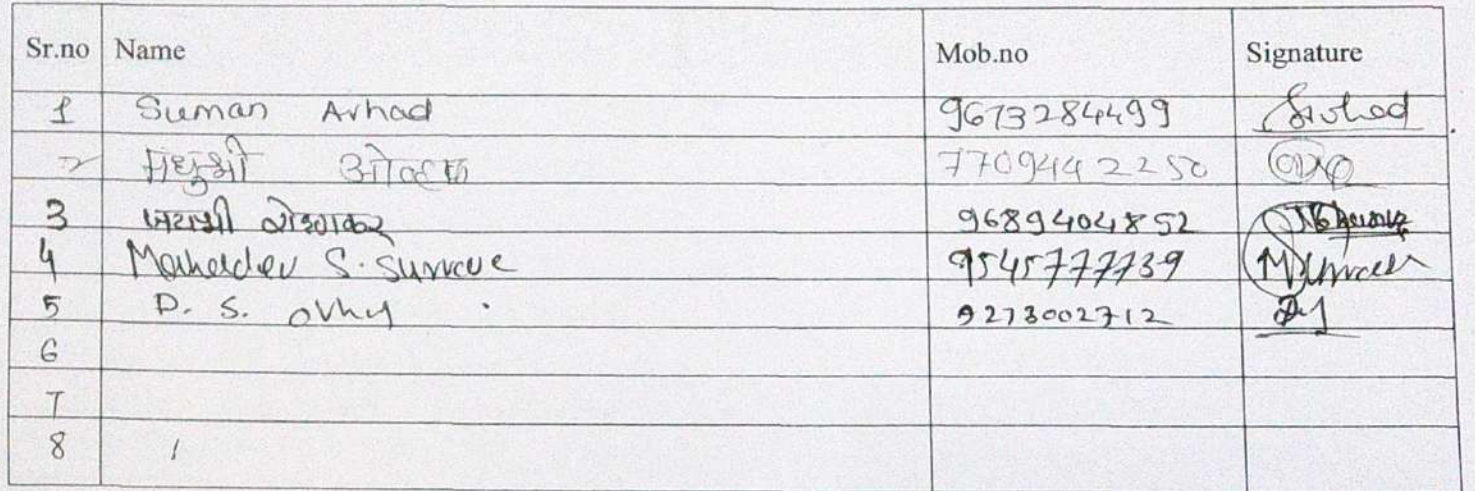 Sr.no Name Mob.no Signature
1 Suman Arhad 9673284499 Arhad
2 मधुश्री ओव्हळ 7709442250
3 जयश्री 9689404852
4 Mahadev S. Surve 9545777739
5 D. S. ovhy 9273002712
6
7
8